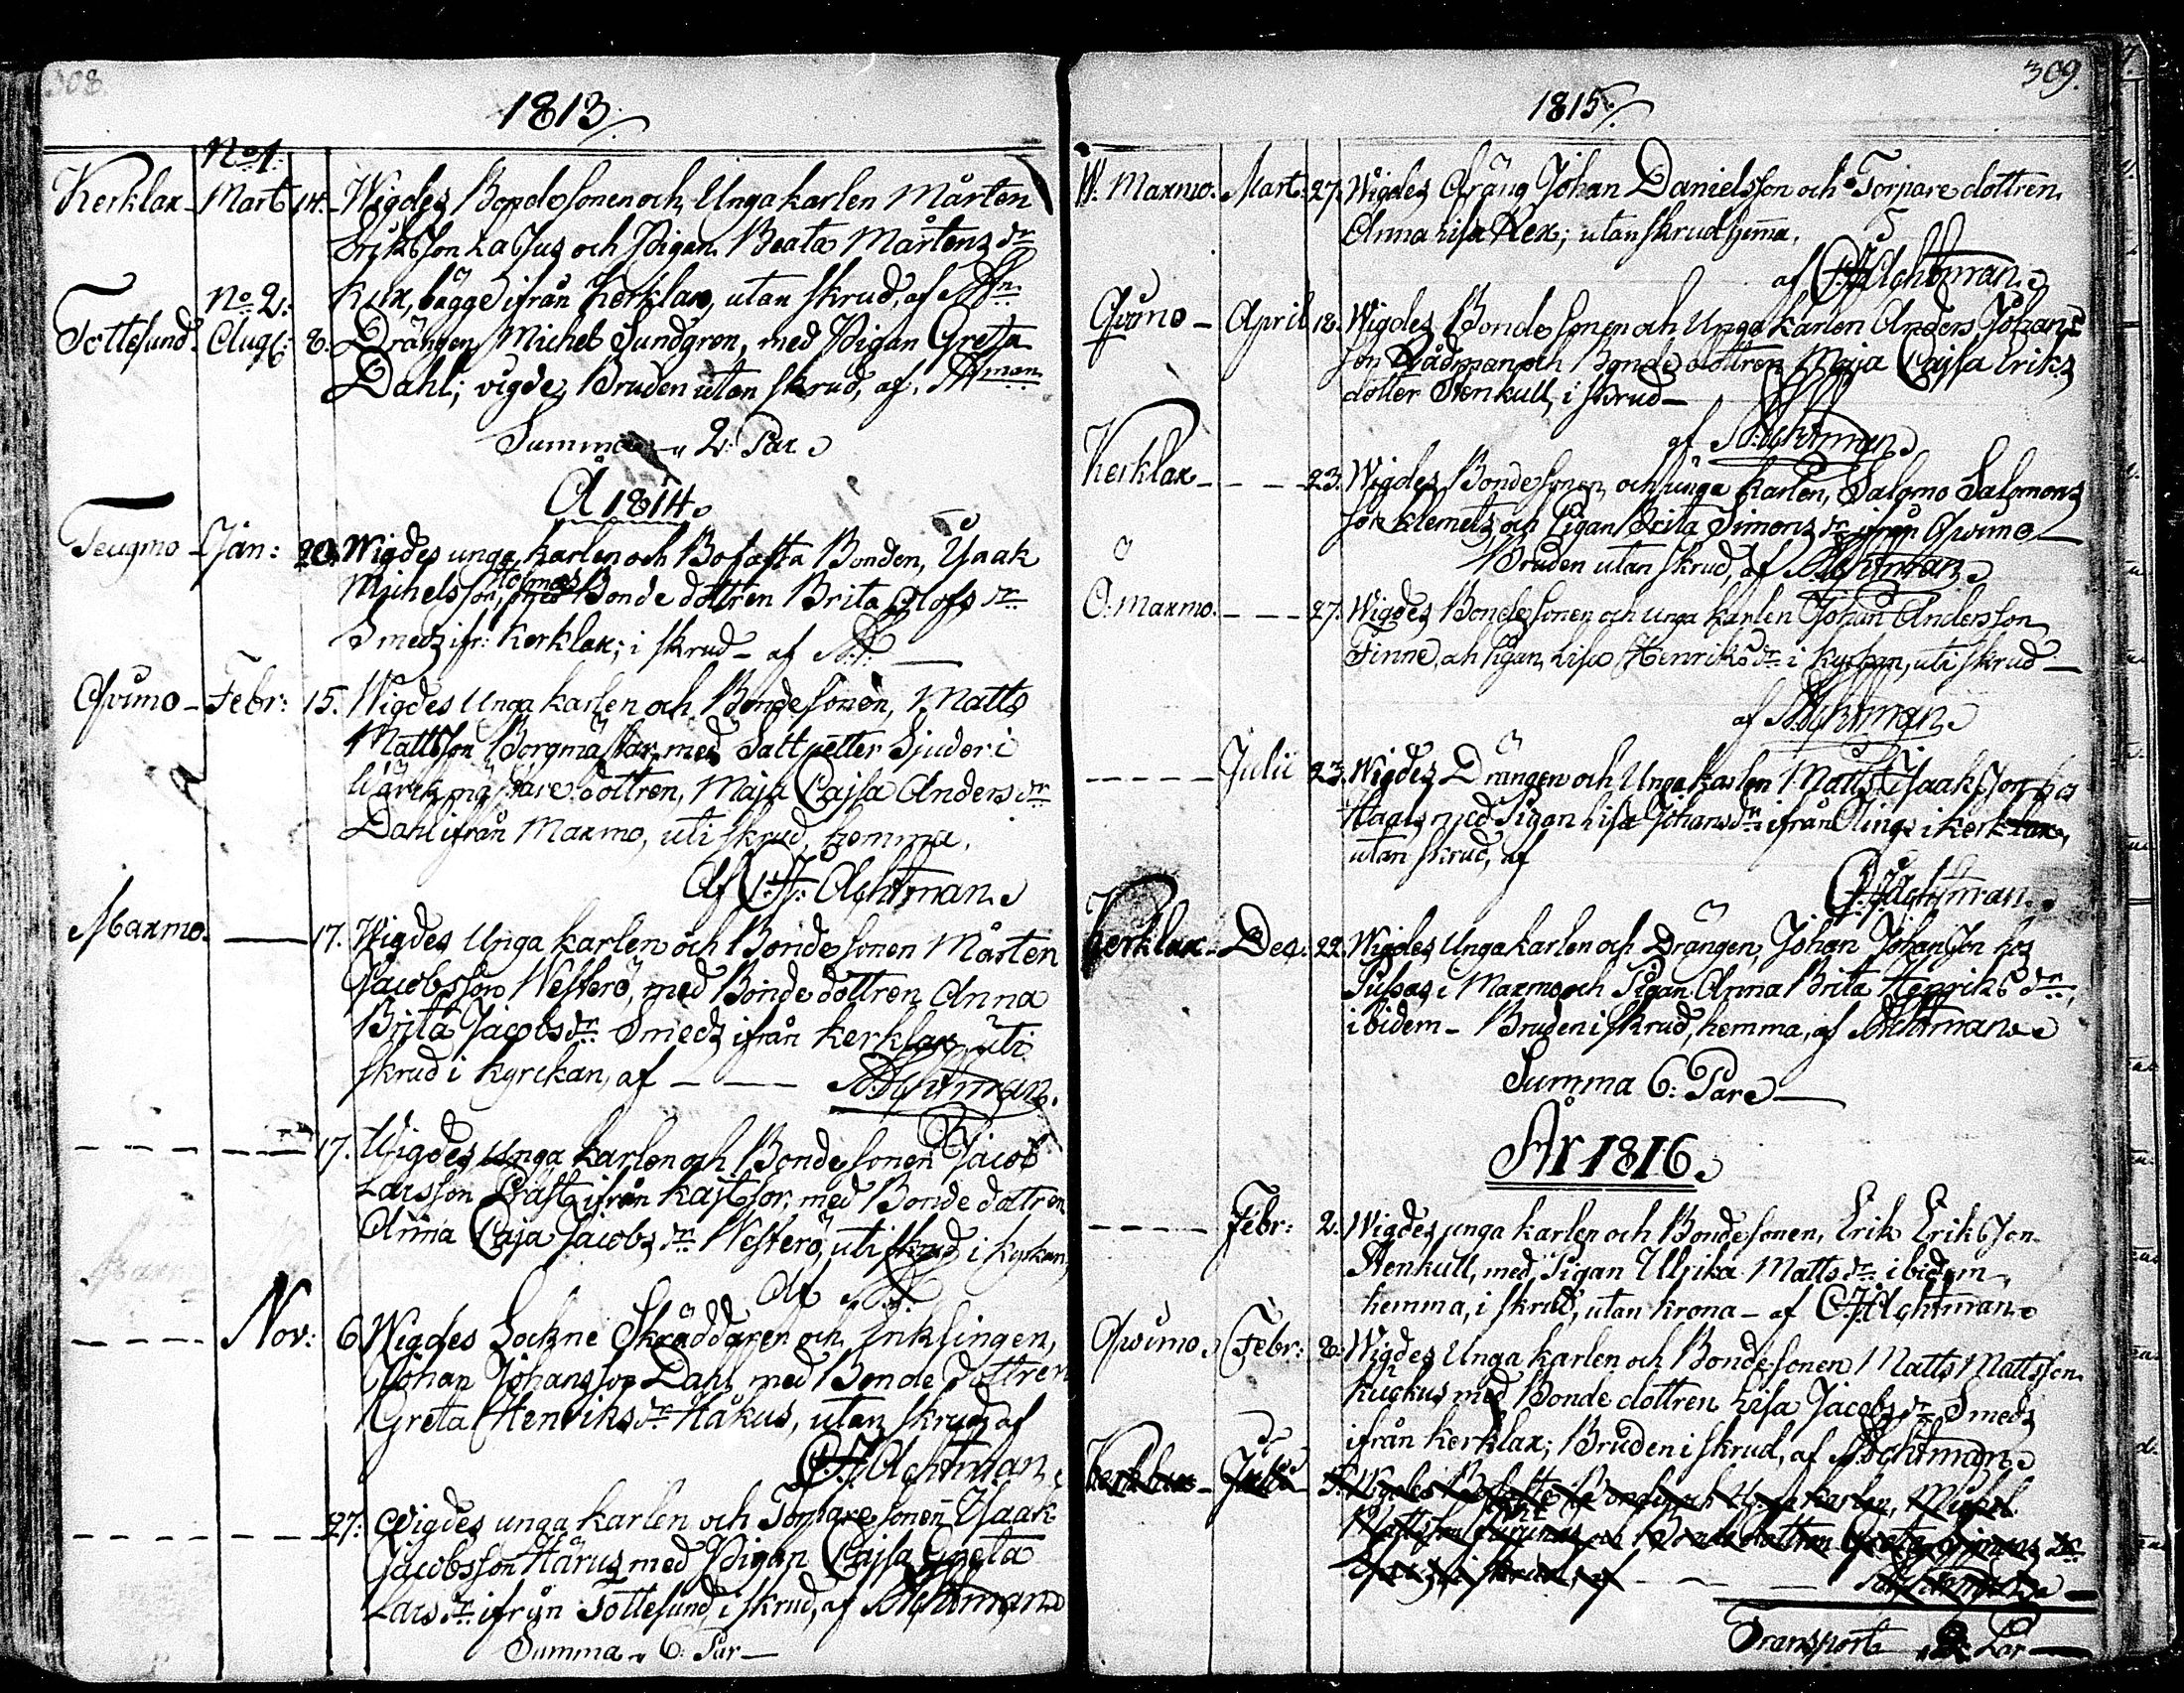 308.
1813.
No 1.
Kerklax Mart 14. Wigdes Bondesonen och Unga karlen Mårten
Eriksson Lassus och Pigan Beata Mårtens dr
Kux, bägge ifrån Kerklax, utan skrud, af
No 2.
Tottesund Aug: 8. Drängen Michel Sundgren, med Pigan Greta
Dahl; vigde, Bruden utan skrud, af.
Summa 2: Par
A 1814.
Teugmo Jan: 20. Wigdes unga karlen och Bofasta Bonden, Isaak
Michelsson, Holmas med Bonde dottren Brita Olofs dr
Smedz ifr: Kerklax; i skrud - af
Qvimo Febr: 15. Wigdes Unga karlen och Bondesonen, Matts
Mattsson Borgmästar, med Saltpetter Sjuderi
Werkmästare dottren, Maja Cajsa Anders dr
Dahl ifrån Maxmo, uti skrud, hemma.
Af C. H. Achtman
Maxmo. 17. Wigdes Unga karlen och Bondesonen Mårten
Jacobsson Westerö, med Bondedottren Anna
Brita Jacobs dr Smedz ifrån Kerklax, uti
skrud i Kyrckan, af Achtman.
17. Wigdes Unga karlen och Bondesonen Jacob
Larsson Präst ifrån Kajtsor, med Bonde dottren
Anna Cajsa Jacobs dr Westerö, uti skrud i Kyrkan,
Af
Nov: 6. Wigdes Sockne Skräddaren och Enklingen,
Johan Johansson Dahl med Bonde dottren
Greta Henriks dr Håkus, utan skrud af
C. H. Achtman
27. Wigdes unga karlen och Torpare sonen Isaak
Jacobsson Härus med Pigan Cajsa Greta
Lars dr ifrån Tottesund i skrud, af Achtman
Summa 6: Par
309.
1815.
W. Maxmo. Mart: 27. Wigdes Dräng Johan Danielsson och Torpare dottren
Anna Lisa Rex; utan skrud hemma,
af C. H. Achtman
Qvimo April 18. Wigdes Bonde sonen och Unga karlen Anders Johans
son Rådman och Bonde dottren Maja Cajsa Eriks
dotter Stenkull, i skrud
af Achtman
Kerklax 23. Wigdes Bonde sonen och unga karlen, Salomo Salomons
son Klemetz och Pigan Brita Simons dr ifrån Qwimo
Bruden utan skrud, af Achtman
Ö. Maxmo. 27. Wigdes Bonde sonen och unga karlen Johan Andersson
Finne, och Pigan Lisa Henriks dr i Kyrkan, uti skrud
af Achtman
Julii 23. Wigdes Drängen och Unga karlen Matts Isaaksson hos
med Pigan Lisa Johans dr ifrån i Kerklax,
utan skrud, af
C. H. Achtman
Kerklax Dec: 22. Wigdes Unga karlen och Drängen, Johan Johansson hos
i Maxmo och Pigan Anna Brita Henriks dr,
ibidem - Bruden i skrud, hemma, af Achtman
Summa 6: Par
År 1816.
Febr: 2. Wigdes unga karlen och Bonde sonen, Erik Eriksson
Stenkull, med Pigan Ullrika Matts dr ibidem,
hemma, i skrud, utan krona - af C. H. Achtman
Qwimo. Febr: Wigdes Unga karlen och Bonde sonen Matts Mattsson
med Bonde dottren Lisa Jacobs dr Smedz
ifrån Kerklax; Bruden i skrud, af Achtman
Kerklax 5. Wigdes Bofaste Bonden och Unga karlen, Michel
Mattsson och Bonde dottren Greta dr
i skrud, af
Transport Par